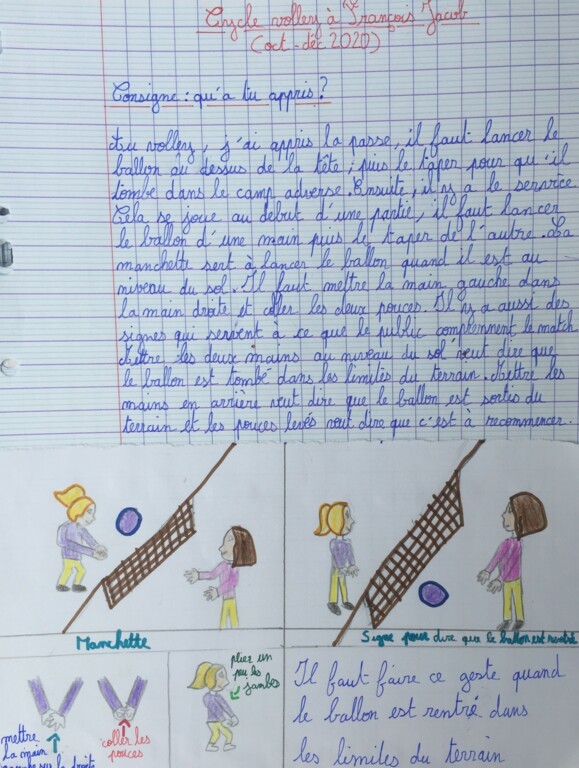 Cycle volley à François Jacob
(oct-déc 2020)
Consigne : qu'a tu appris ?
Au volley, j'ai appris la passe, il faut lancer le
ballon au dessus de la tête ; puis le taper pour qu'il
tombe dans le camp adverse. Ensuite, il y a le service
Cela se joue au début d'une partie, il faut lancer
le ballon d'une main puis le taper de l'autre. La
manchette sert à lancer le ballon quand il est au
niveau du sol. Il faut mettre la main gauche dans
la main droite et coller les deux pouces. Il y a aussi des
signes qui servent à ce que le public comprennent le match
Mettre les deux mains au niveau du sol veut dire que
le ballon est tombé dans les limites du terrain. Mettre les
mains en arrière veut dire que le ballon est sortis du
terrain et les pouces levés veut dire que c'est à recommencer.
Manchette
Signe pour dire que le ballon est rentré
mettre
la main
gauche sur la droite
coller les
pouces
plier un
peu les
jambes
Il faut faire ce geste quand
le ballon est rentré dans
les limites du terrain